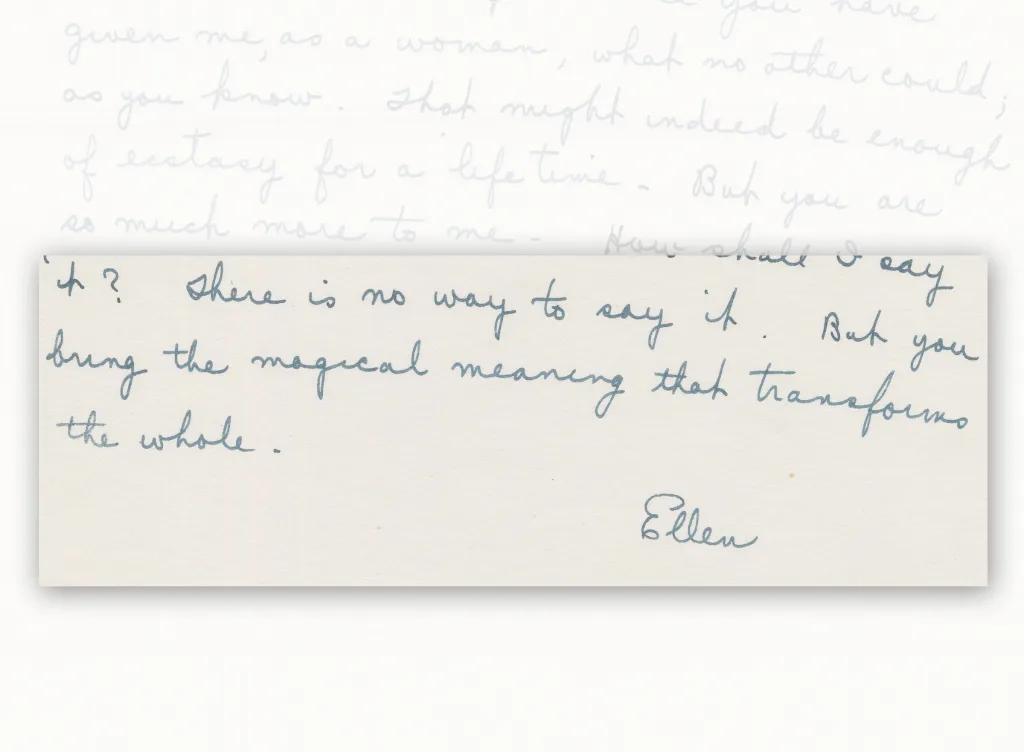 you have
given me, as a woman, what no other could;
as you know. That might indeed be enough
of ecstasy for a life time. But you are
so much more to me. How shall I say
it? There is no way to say it. But you
bring the magical meaning that transforms
the whole.
Ellen